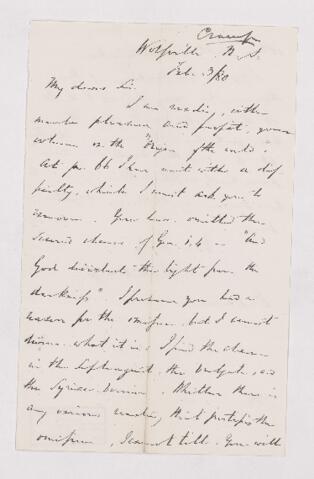 Wolfville N.S.
Feb. 3/80
My dear Sir.
I am reading, with
much pleasure and profit, your
volume on the "Origin of the world".
At p. 66 I have met with a dif
ficulty, which I must ask you to
remove. You have omitted the
second clause of Gen. 1, 4 — "And
God divided the light from the
darkness" I presume you had a
reason for the omission, but I cannot
what it is. I find the clause
in the Septuagint, the Vulgate, and
the Syriac version. Whether there is
any various reading that justifies the
omission, I cannot tell. You will